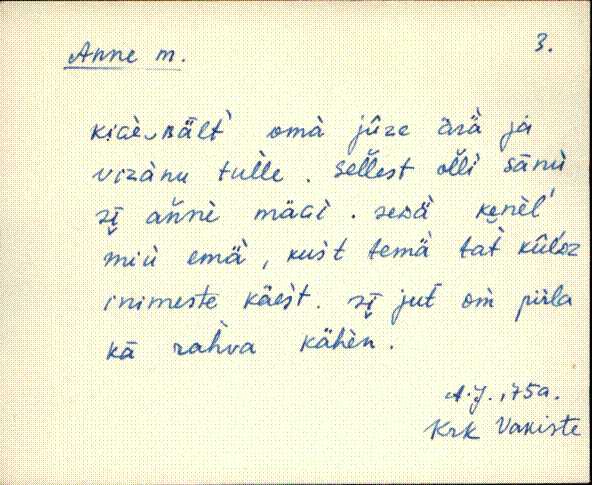 Anne m.
3.
kiɢè‿ʙält̀ omà jûze ärä̀ ja
vizànu tulle. sellest olli sānù
sī̬ ańnè mäɢì. sedä kǫnèl'
miù emä̀, kust temä̀ tat̀ kûlʙz
inimeste käèst. sī̬ jut̀ om̀ pirla
kā rahva kähèn.
A.J., 75a.
Krk Vaniste